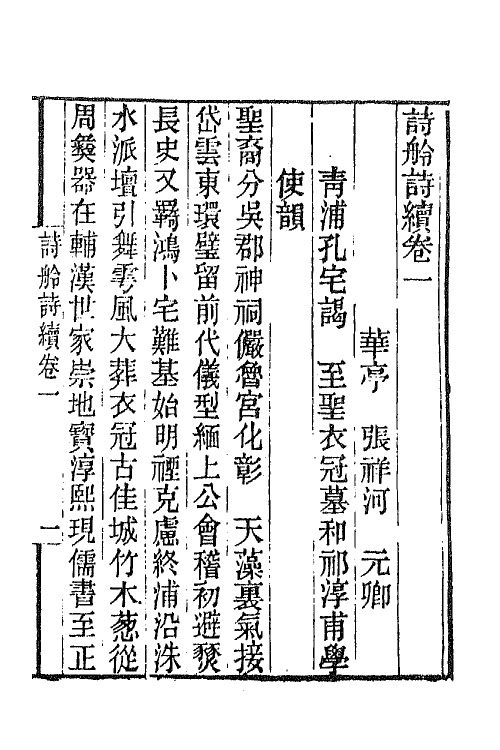 詩舲詩續卷一
華亭　張祥河　元卿
青浦孔宅謁　至聖衣冠墓和祁淳甫學
使韻
聖裔分吳郡神祠儼魯宮化彰　天藻裏氣接
岱雲東環璧留前代儀型緬上公會稽初避爂
長史又羇鴻卜宅難基始明禋克慮終浦沿洙
水派壇引舞雩風大葬衣冠古佳城竹木蔥從
周彝器在輔漢世家崇地寶淳熙現儒書至正
詩舲詩續卷一　一